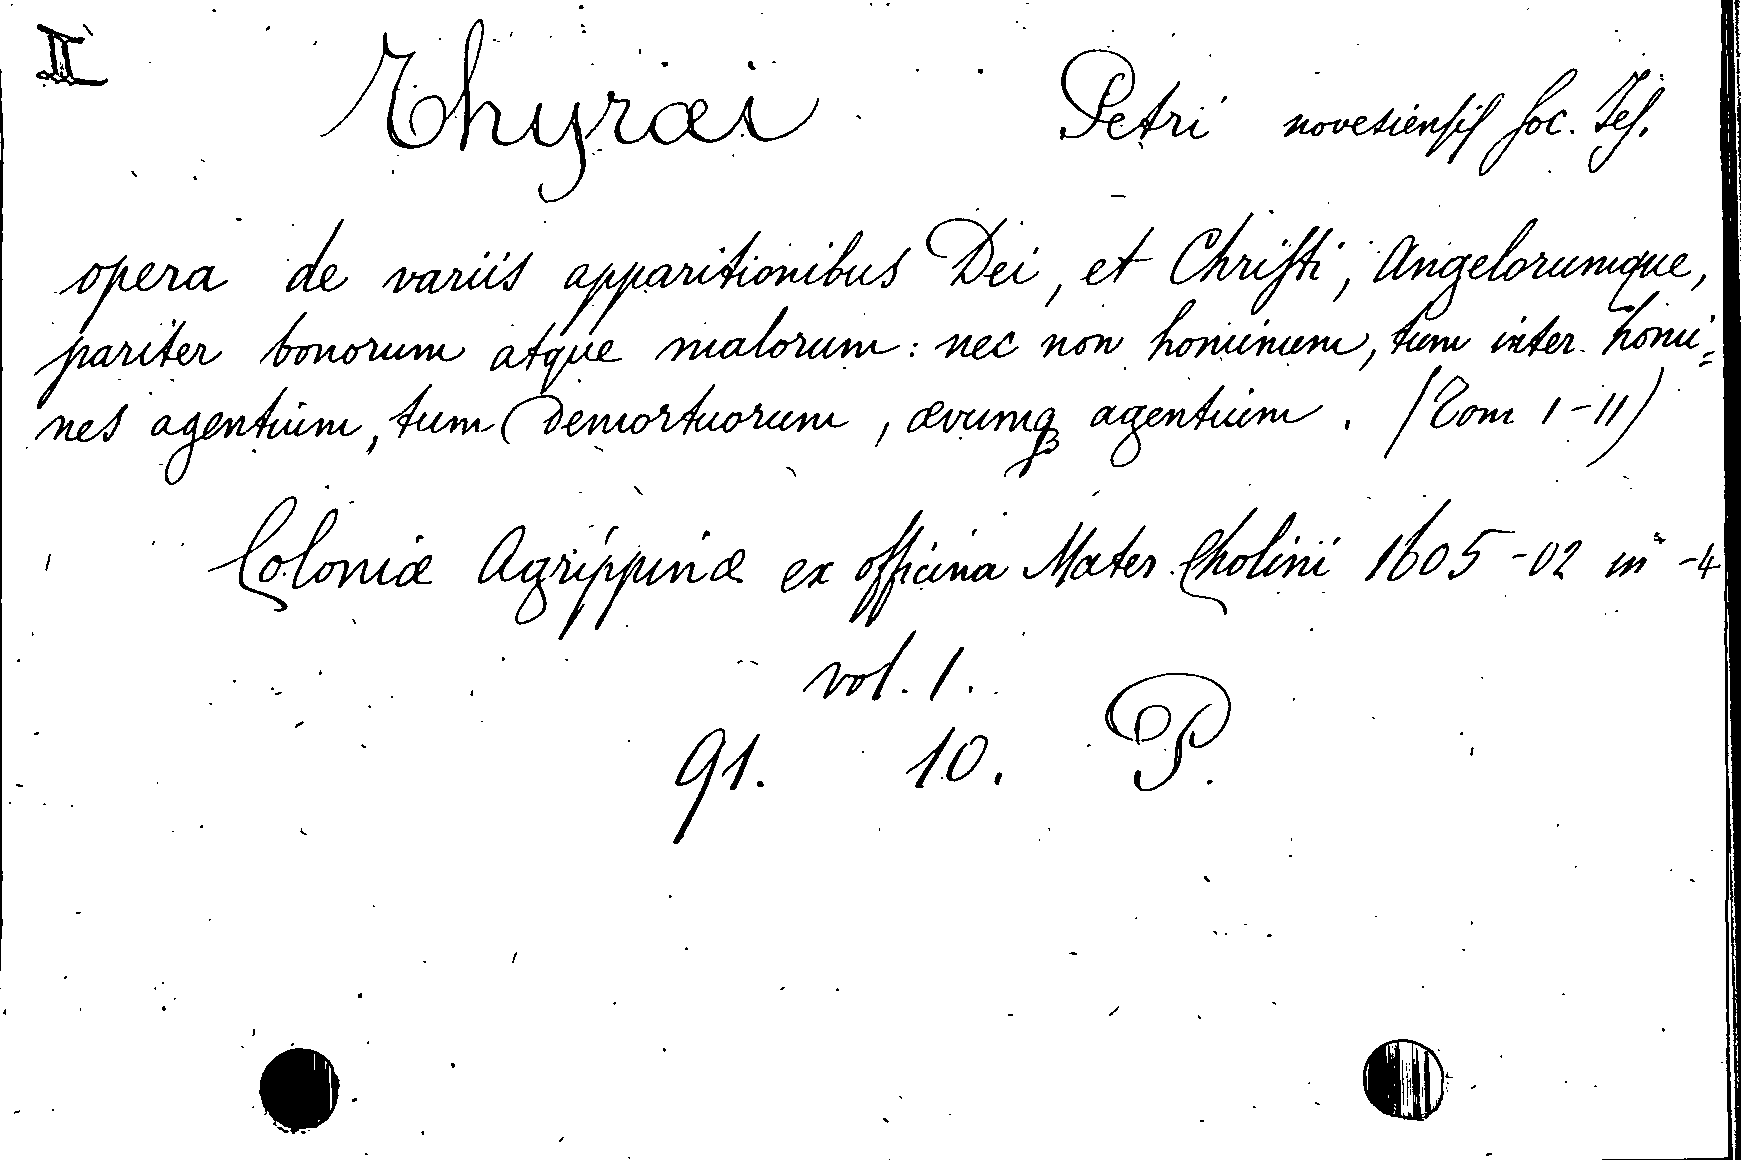 II
Thyræi Petri novesiensis Soc. Jes.
opera de variis apparitionibus Dei, et Christi, Angelorumque,
pariter bonorum atque malorum: nec non hominum, tum inter homi=
nes agentium, tum demortuorum, ævumq; agentium. (Tom 1-11)
Coloniæ Agrippinæ ex officina Mater Cholini 1605-02 in -4
vol. 1.
91. 10. P.